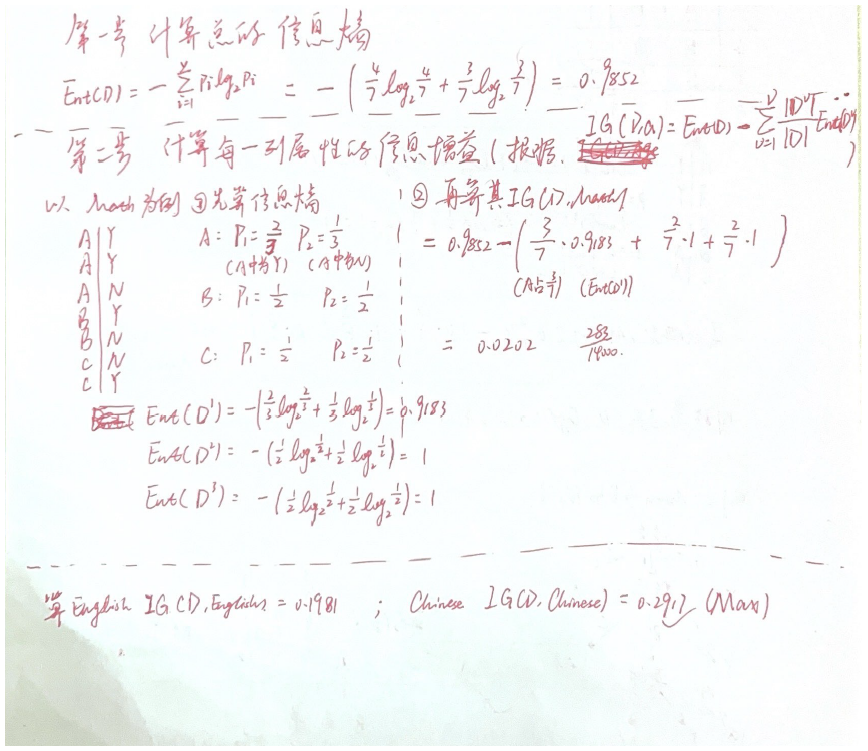 第一步 计算总的信息熵
Ent(D) = - ∑ᵢ₌₁ⁿ Pi log₂ Pi = - ( 4/7 log₂ 4/7 + 3/7 log₂ 3/7 ) = 0.9852
第二步 计算每一列属性的信息增益 ( 根据. IG(D,a) = Ent(D) - ∑ᵥ₌₁ⱽ |Dᵛ|/|D| Ent(Dᵛ) )
以 Math 为例 ①先算信息熵
A | Y A: P₁ = 2/3 P₂ = 1/3
A | Y (A中为Y) (A中为N)
A | N B: P₁ = 1/2 P₂ = 1/2
B | Y
B | N
C | N C: P₁ = 1/2 P₂ = 1/2
C | Y
Ent(D¹) = -(2/3 log₂ 2/3 + 1/3 log₂ 1/3) = 0.9183
Ent(D²) = -(1/2 log₂ 1/2 + 1/2 log₂ 1/2) = 1
Ent(D³) = -(1/2 log₂ 1/2 + 1/2 log₂ 1/2) = 1
② 再算其IG(D,Math)
= 0.9852 - ( 3/7 · 0.9183 + 2/7 · 1 + 2/7 · 1 )
(A占3/7) (Ent(D¹))
= 0.0202 283/14000.
算 English IG(D,English) = 0.1981 ; Chinese IG(D, Chinese) = 0.2917 (Max)